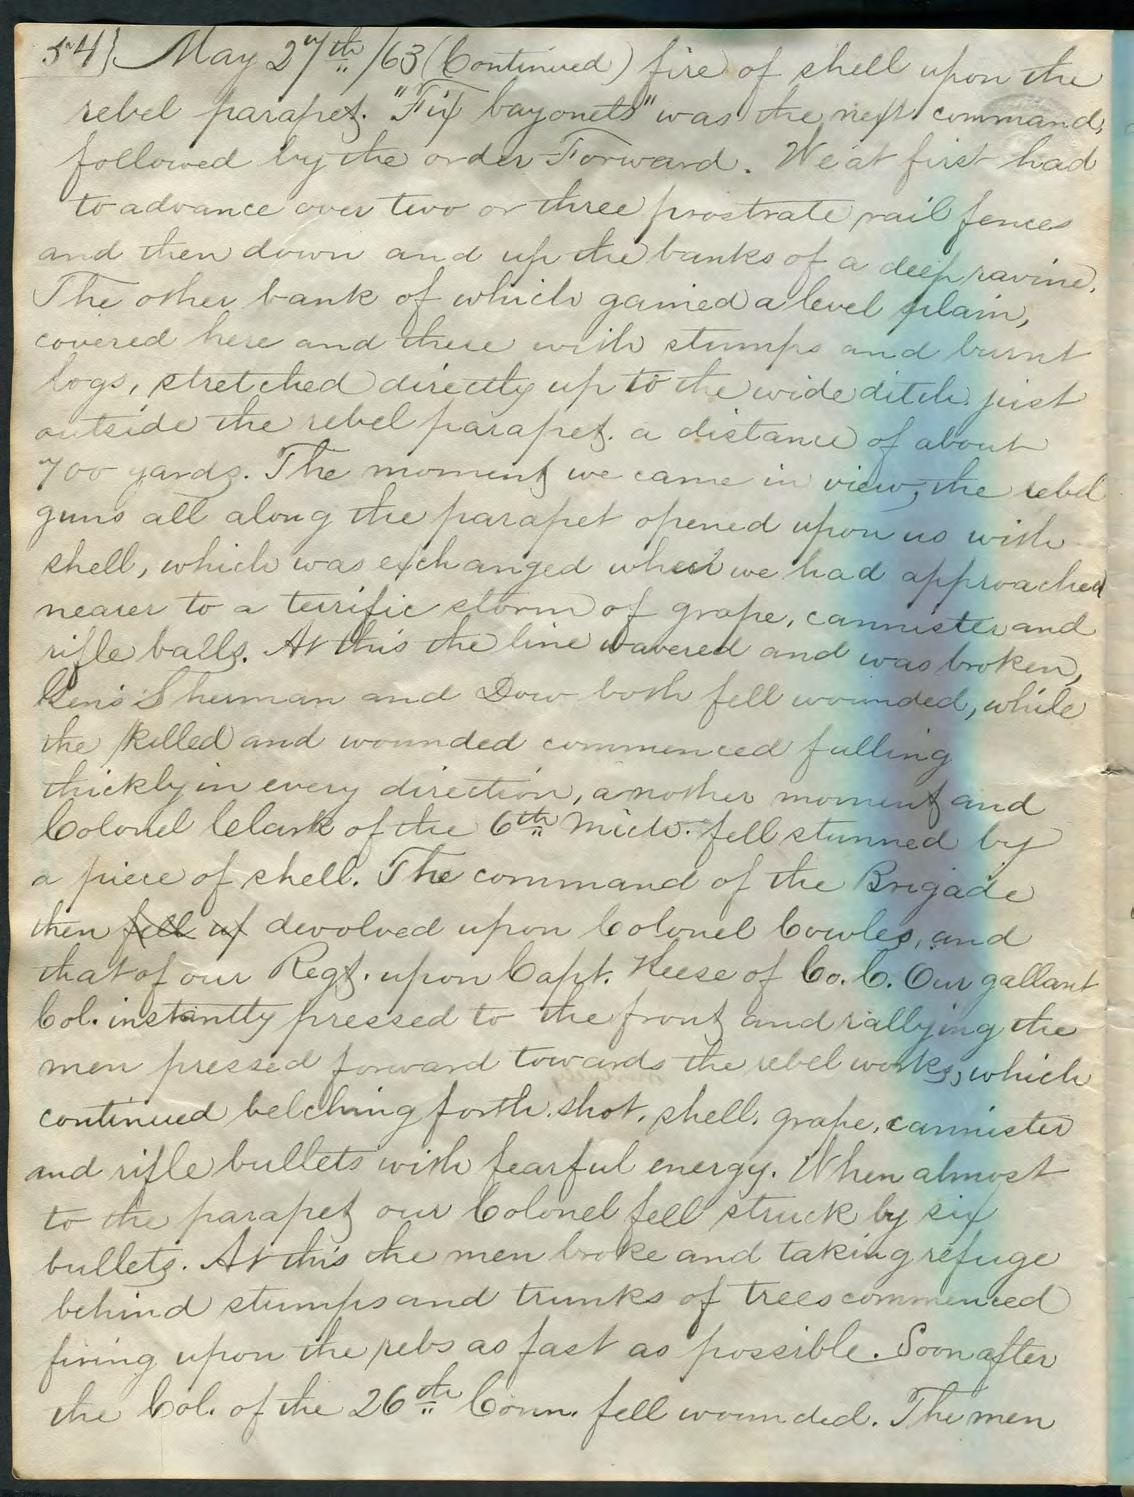 54} May 27th/63 (Continued) fire of shell upon the
rebel parapet. "Fix bayonets" was the next command,
followed by the order Forward. We at first had
to advance over two or three prostrate rail fences
and then down and up the banks of a deep ravine.
The other bank of which gained a level plain,
covered here and there with stumps and burnt
logs, stretched directly up to the wide ditch just
outside the rebel parapet. a distance of about
700 yards. The moment we came in view, the rebel
guns all along the parapet opened upon us with
shell, which was exchanged when we had approached
nearer to a terrific storm of grape, cannister and
rifle balls. At this the line wavered and was broken,
Gens Sherman and Dow both fell wounded, while
the killed and wounded commenced falling
thickly in every direction, another moment and
Colonel Clark of the 6th Mich. fell stunned by
a piece of shell. The command of the Brigade
then fell up devolved upon Colonel Cowles, and
that of our Regt. upon Capt. Keese of Co. C. Our gallant
Col. instantly pressed to the front and rallying the
men pressed forward towards the rebel works, which
continued belching forth shot, shell, grape, cannister
and rifle bullets with fearful energy. When almost
to the parapet our Colonel fell struck by six
bullets. At this the men broke and taking refuge
behind stumps and trunks of trees commenced
firing upon the rebs as fast as possible. Soon after
the Col. of the 26th Conn. fell wounded. The men